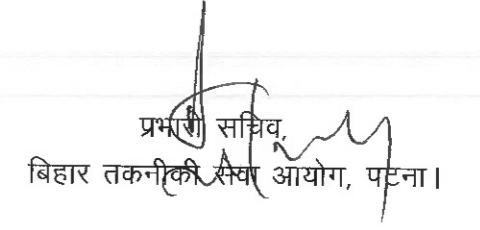 प्रभारी सचिव,
बिहार तकनीकी सेवा आयोग, पटना।